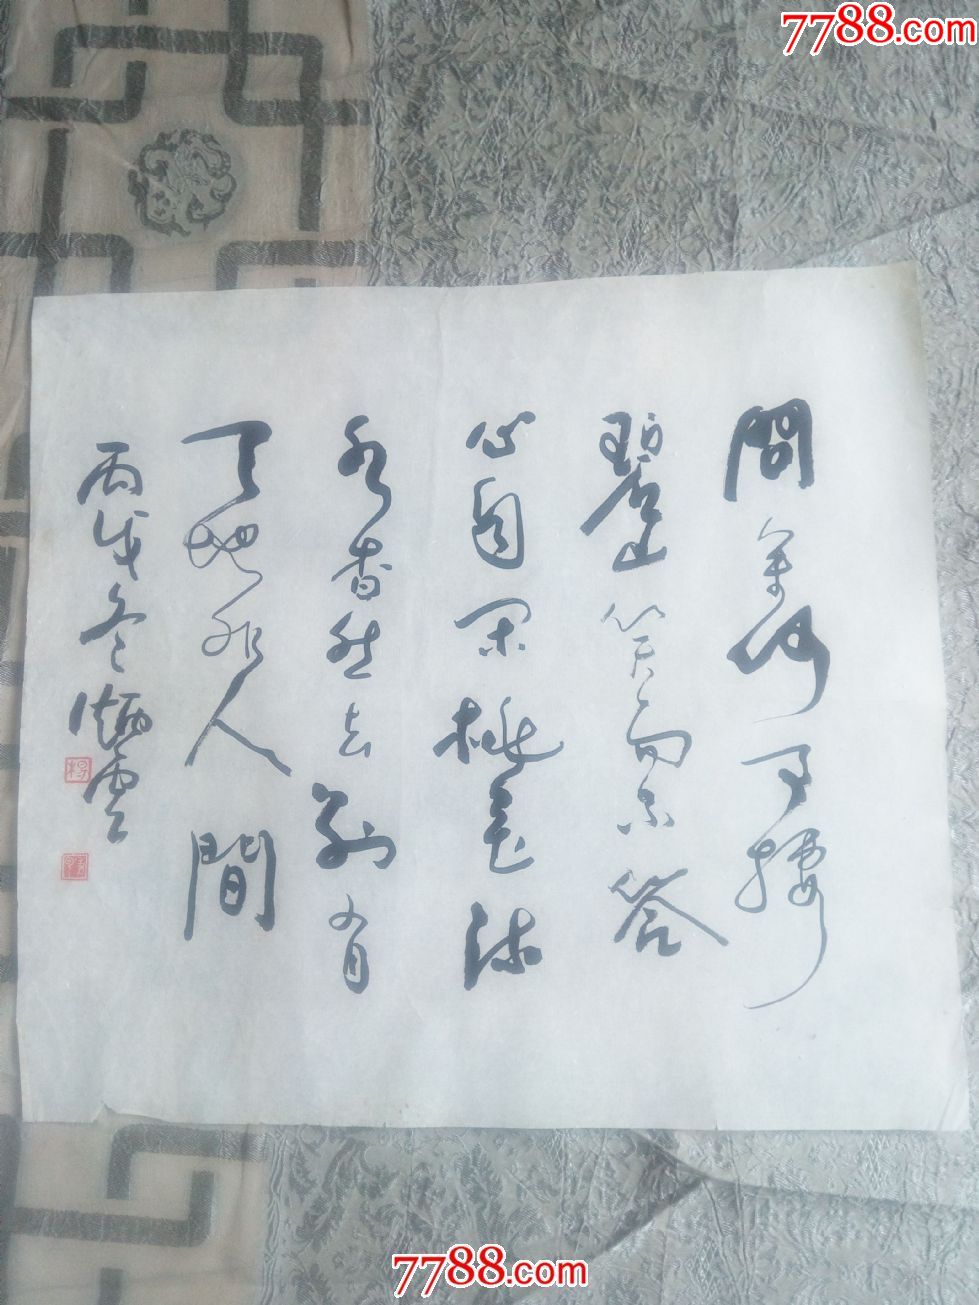 7788.com
問余何事棲
碧山笑而不答
心自閑桃花流
水杳然去別有
天地非人間
丙戌冬炳雲
楊
7788.com